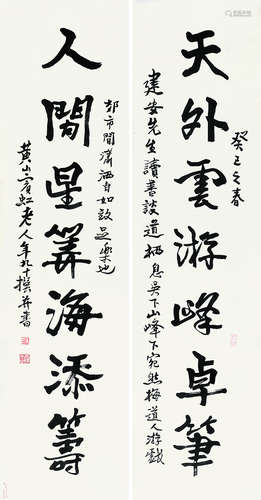 癸巳之春
天外雲游峰卓筆
建安先生讀書談道栖息吳下山峰下宛然梅道人游戲
市間瀟洒自如致足樂也
人閒星筭海添籌
黄山賓虹老人年九十撰并書